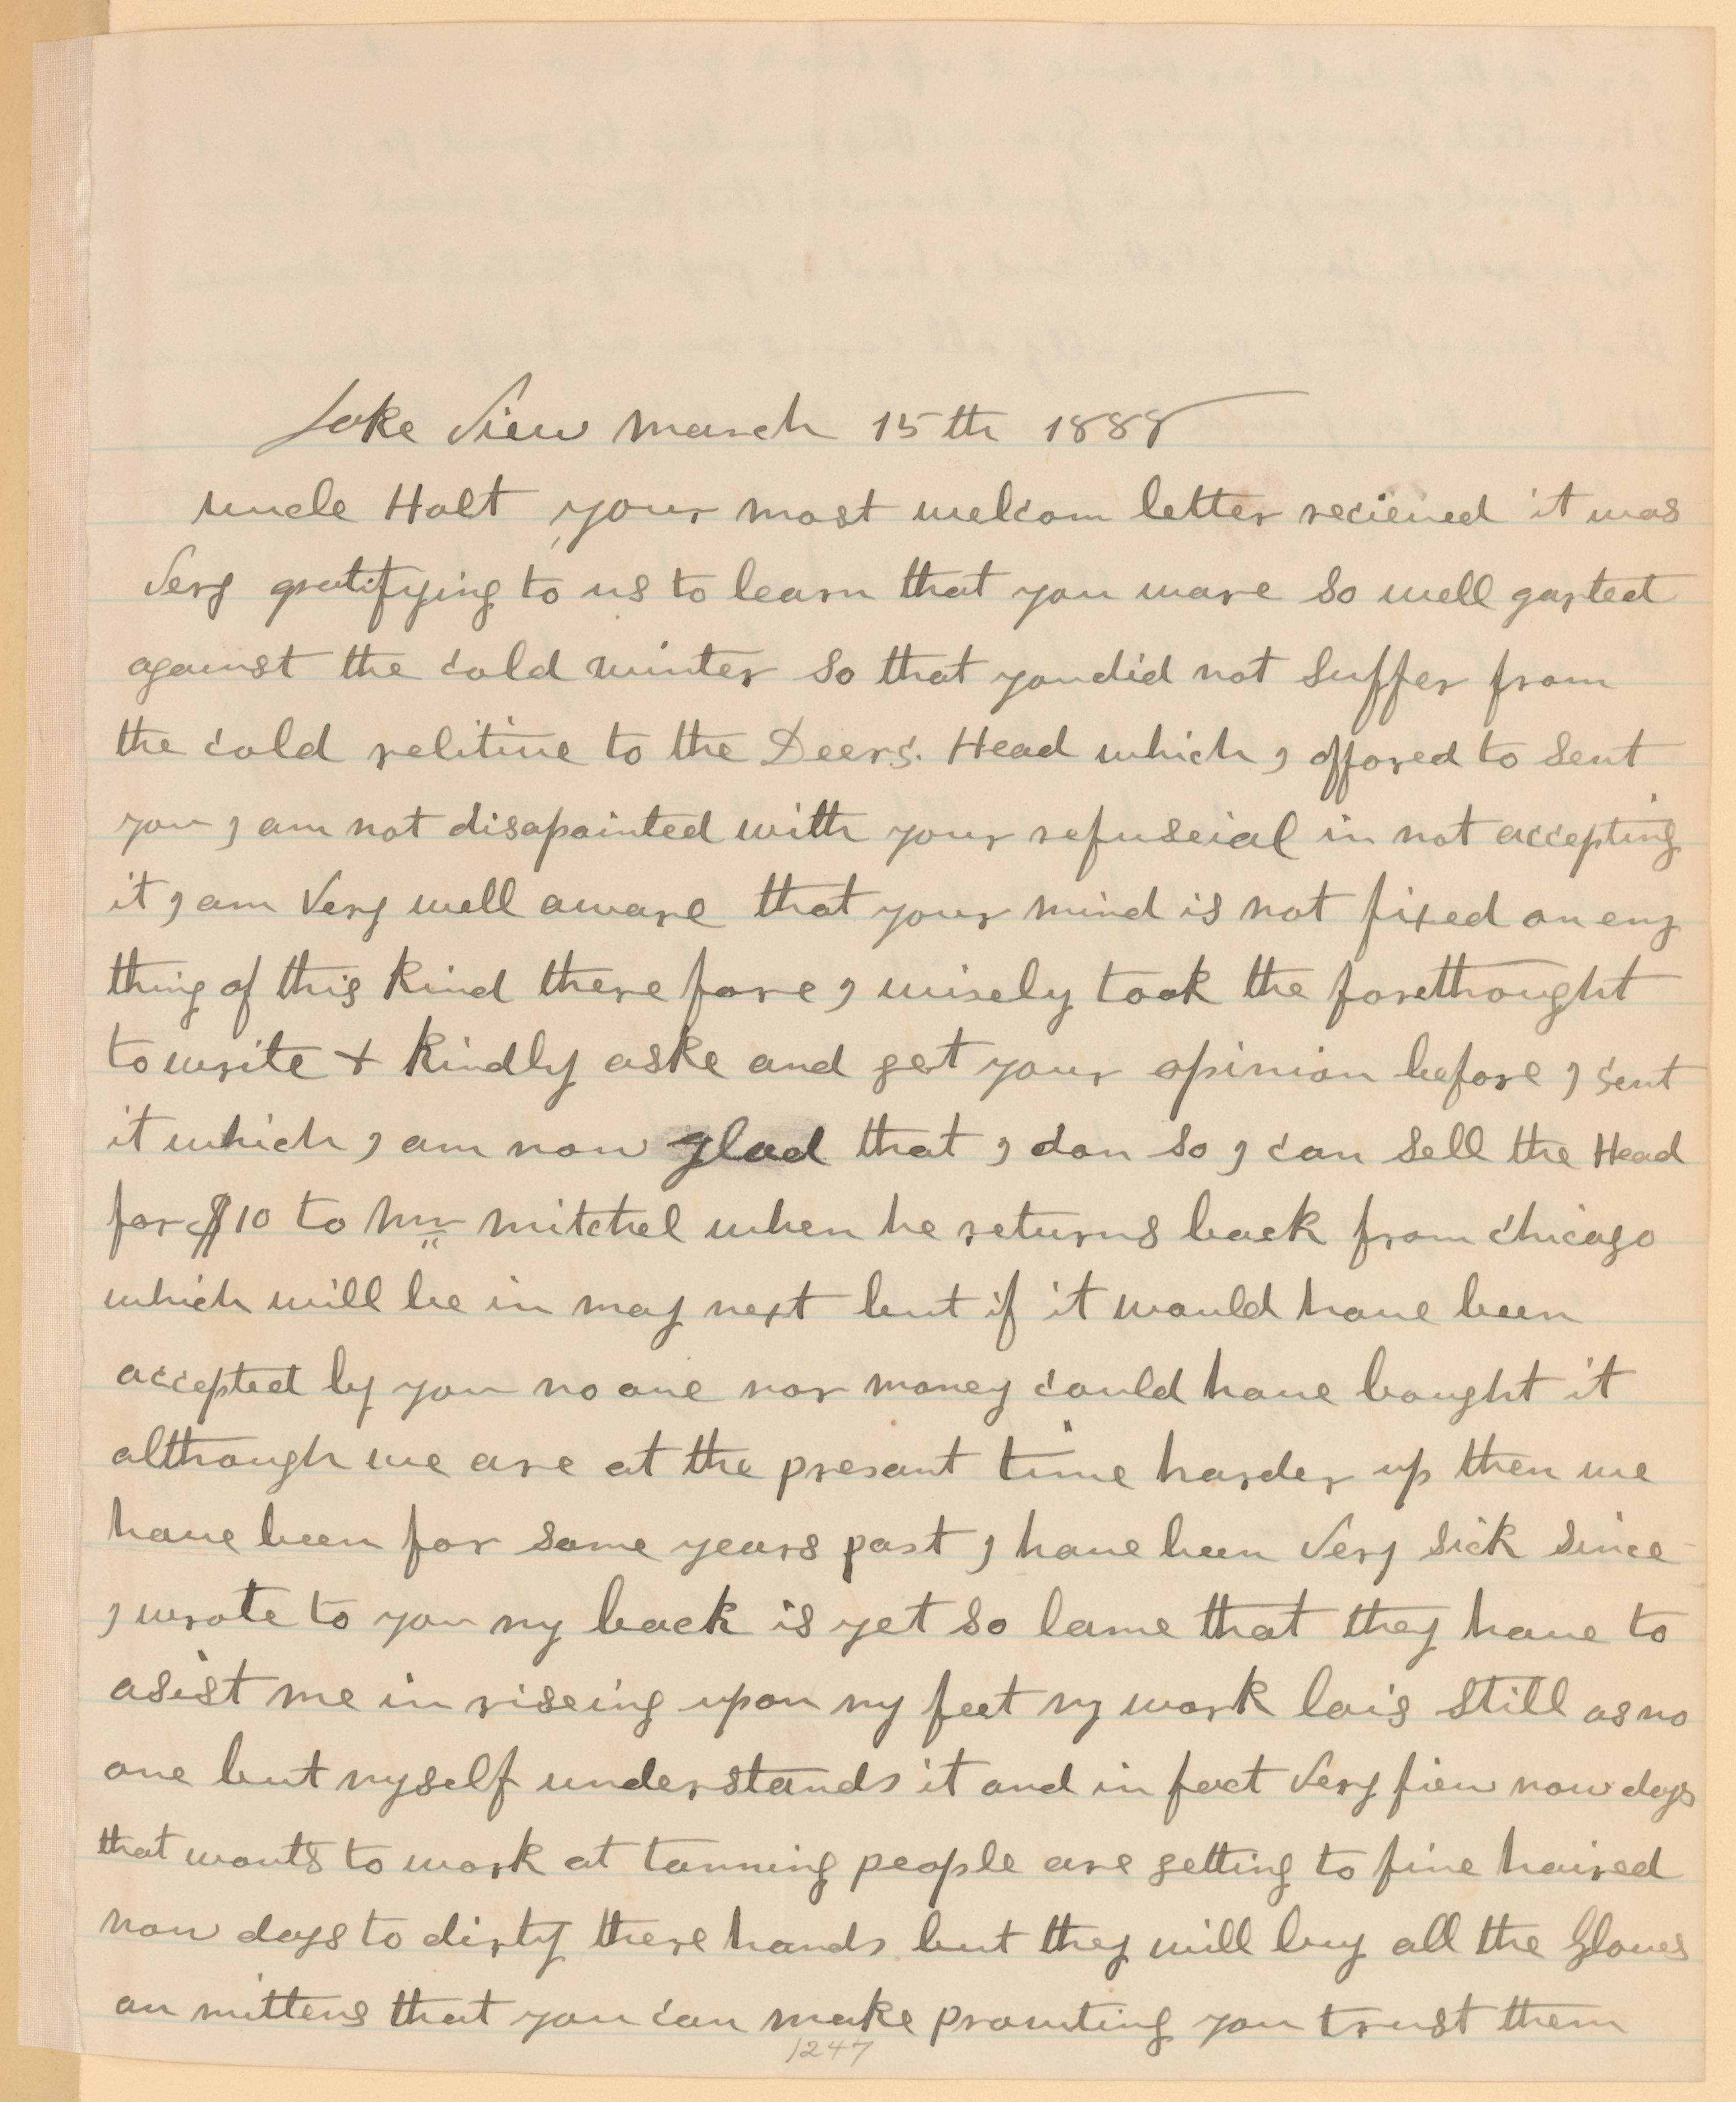 Lake View march 15th 1888
uncle Holt your most welcom letter recieved it was
very gratifying to us to learn that you ware so well garted
against the cold winter so that you did not suffer from
the cold relitive to the Deers. Head which , offored to sent
you , am not disapointed with your refuseial in not accepting
it , am very well aware that your mind is not fixed on eny
thing of this kind there fore , wisely took the forethought
to write + kindly aske and get your opinion before , sent
it which , am now glad that , don so , can sell the Head
for $10 to mr mitchel when he returns back from chicago
which will be in may next but if it would have been
accepted by you no one nor money could have bought it
although we are at the presant time harder up then we
have been for some years past , have been very sick since
, wrote to you my back is yet so lame that they have to
asist me in riseing upon my feet my work lais still as no
one but myself understands it and in fact very fiew now days
that wonts to work at tanning people are getting to fine haired
now days to dirty there hands but they will buy all the Gloves
an mittens that you can make prouiting you trust them
1247